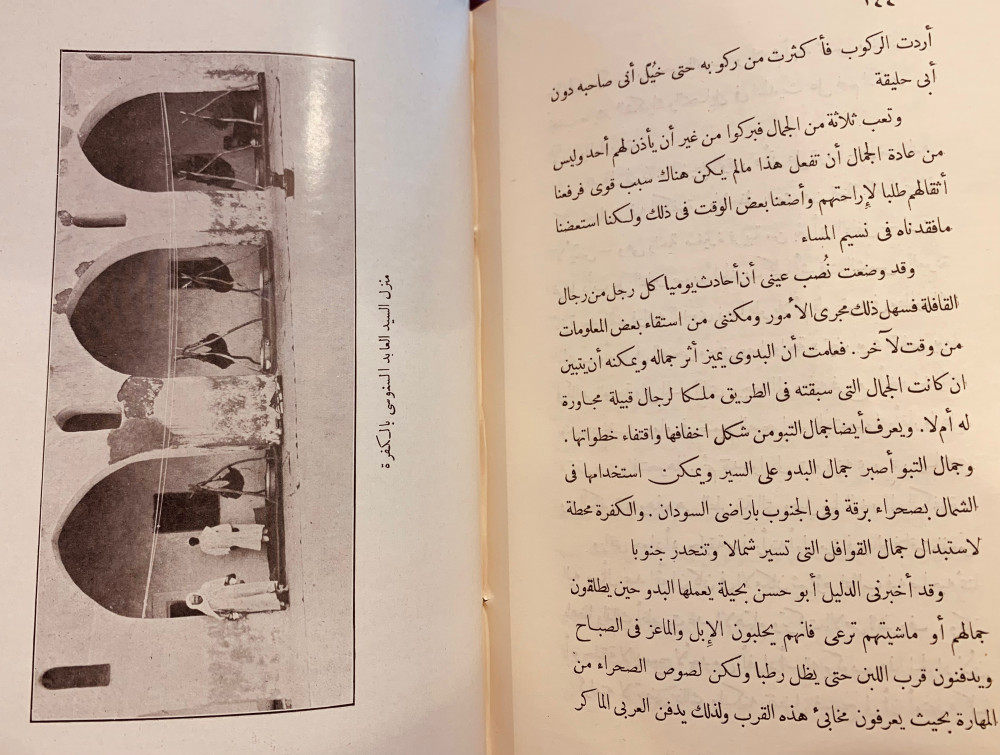 ٢٤٤
أردت الركوب فأكثرت من ركوبه حتى خُيّل أنى صاحبه دون
أبى حليقة
وتعب ثلاثة من الجمال فبركوا من غير أن يأذن لهم أحد وليس
من عادة الجمال أن تفعل هذا مالم يكن هناك سبب قوى فرفعنا
أثقالهم طلبا لإراحتهم وأضعنا بعض الوقت فى ذلك ولكنا استعضنا
مافقدناه فى نسيم المساء
وقد وضعت نُصب عينى أن أحادث يوميا كل رجل من رجال
القافلة فسهل ذلك مجرى الأمور ومكننى من استقاء بعض المعلومات
من وقت لآخر . فعامت أن البدوى يميز أثر جماله ويمكنه أن يتبين
ان كانت الجمال التى سبقته فى الطريق ملكا لرجال قبيلة مجاورة
له أم لا . ويعرف أيضا جمال التبو من شكل اخفافها واقتفاء خطواتها .
وجمال التبو أصبر جمال البدو على السير ويمكن استخدامها فى
الشمال بصحراء برقة وفى الجنوب باراضى السودان . والكفرة محطة
لاستبدال جمال القوافل التى تسير شمالا وتنحدر جنوبا
وقد أخبرنى الدليل أبو حسن بحيلة يعملها البدو حين يطلقون
جمالهم أو ماشيتهم ترعى فانهم يحلبون الإبل والماعز فى الصباح
ويدفنون قرب اللبن حتى يظل رطبا ولكن لصوص الصحراء من
المهارة بحيث يعرفون مخابىء هذه القرب ولذلك يدفن العربى الماكر
منزل السيد العابد السنوسى بالكفرة